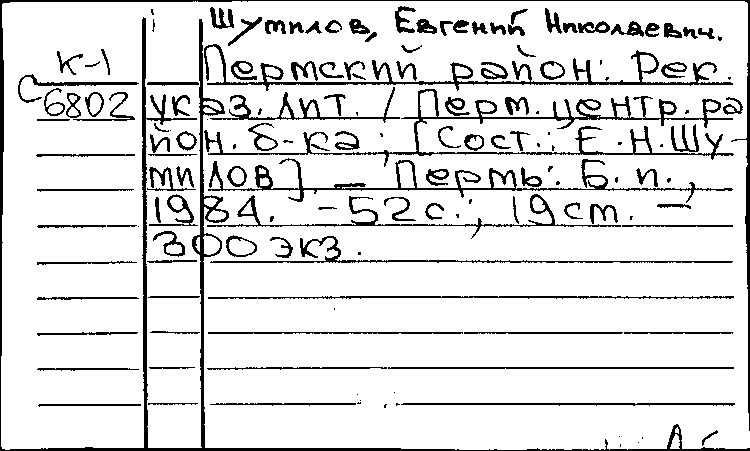 Шумилов, Евгений Николаевич.
К-1 Пермский район: Рек.
С6802 указ. лит. / Перм. центр. ра
йон. б-ка ; [Сост.: Е.Н.Шу-
милов]. — Пермь: Б. и.,
1984. - 52 с.; 19 cm. —
300 экз.